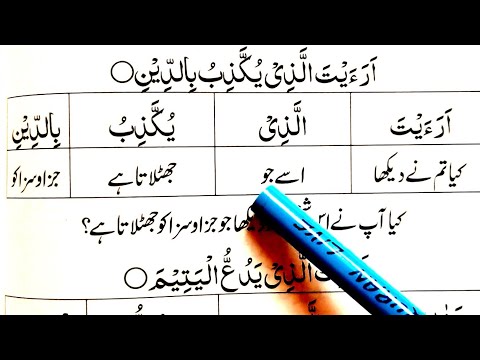 اَرَءَيْتَ الَّذِيْ يُكَذِّبُ بِالدِّيْنِ ○
اَرَءَيْتَ الَّذِيْ يُكَذِّبُ بِالدِّيْنِ
کیا تم نے دیکھا اسے جو جھٹلاتا ہے جزا و سزا کو
کیا آپ نے اس دیکھا جو جزا و سزا کو جھٹلاتا ہے؟
الَّذِيْ يَدُعُّ الْيَتِيْمَ ○